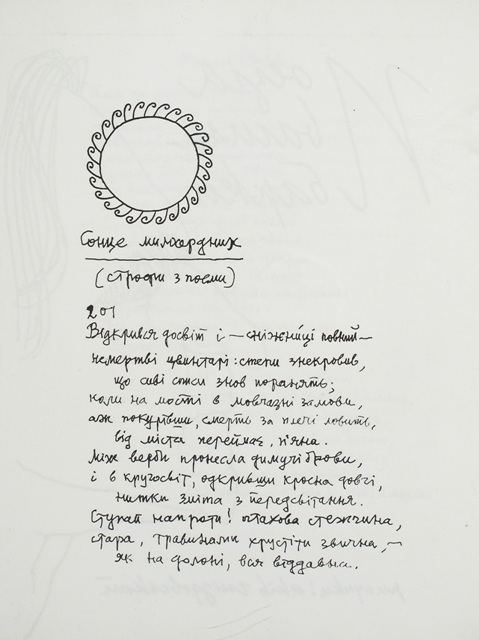 Сонце милосердних
(строфи з поеми)
201
Відкрився досвіт і — сніжниці повний —
немертві цвинтарі: степи знекровив,
що сиві списи знов поранять;
коли на мості в мовчазні замови,
аж покуривши, смерть за плечі ловить,
від міста переймає, п'яна.
Між верби пронесла димучі брови,
і в кругосвіт, одкривши кросна довгі,
нитки зміта з передсвітання.
Ступай напроти! птахова стежчина,
стара, травинами хрустіти звична, —
як на долоні, вся віддавна.